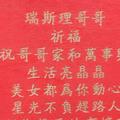 瑞斯理哥哥
祈福
祝哥哥家和萬事興
生活亮晶晶
美女都為你動心
星光不負趕路人